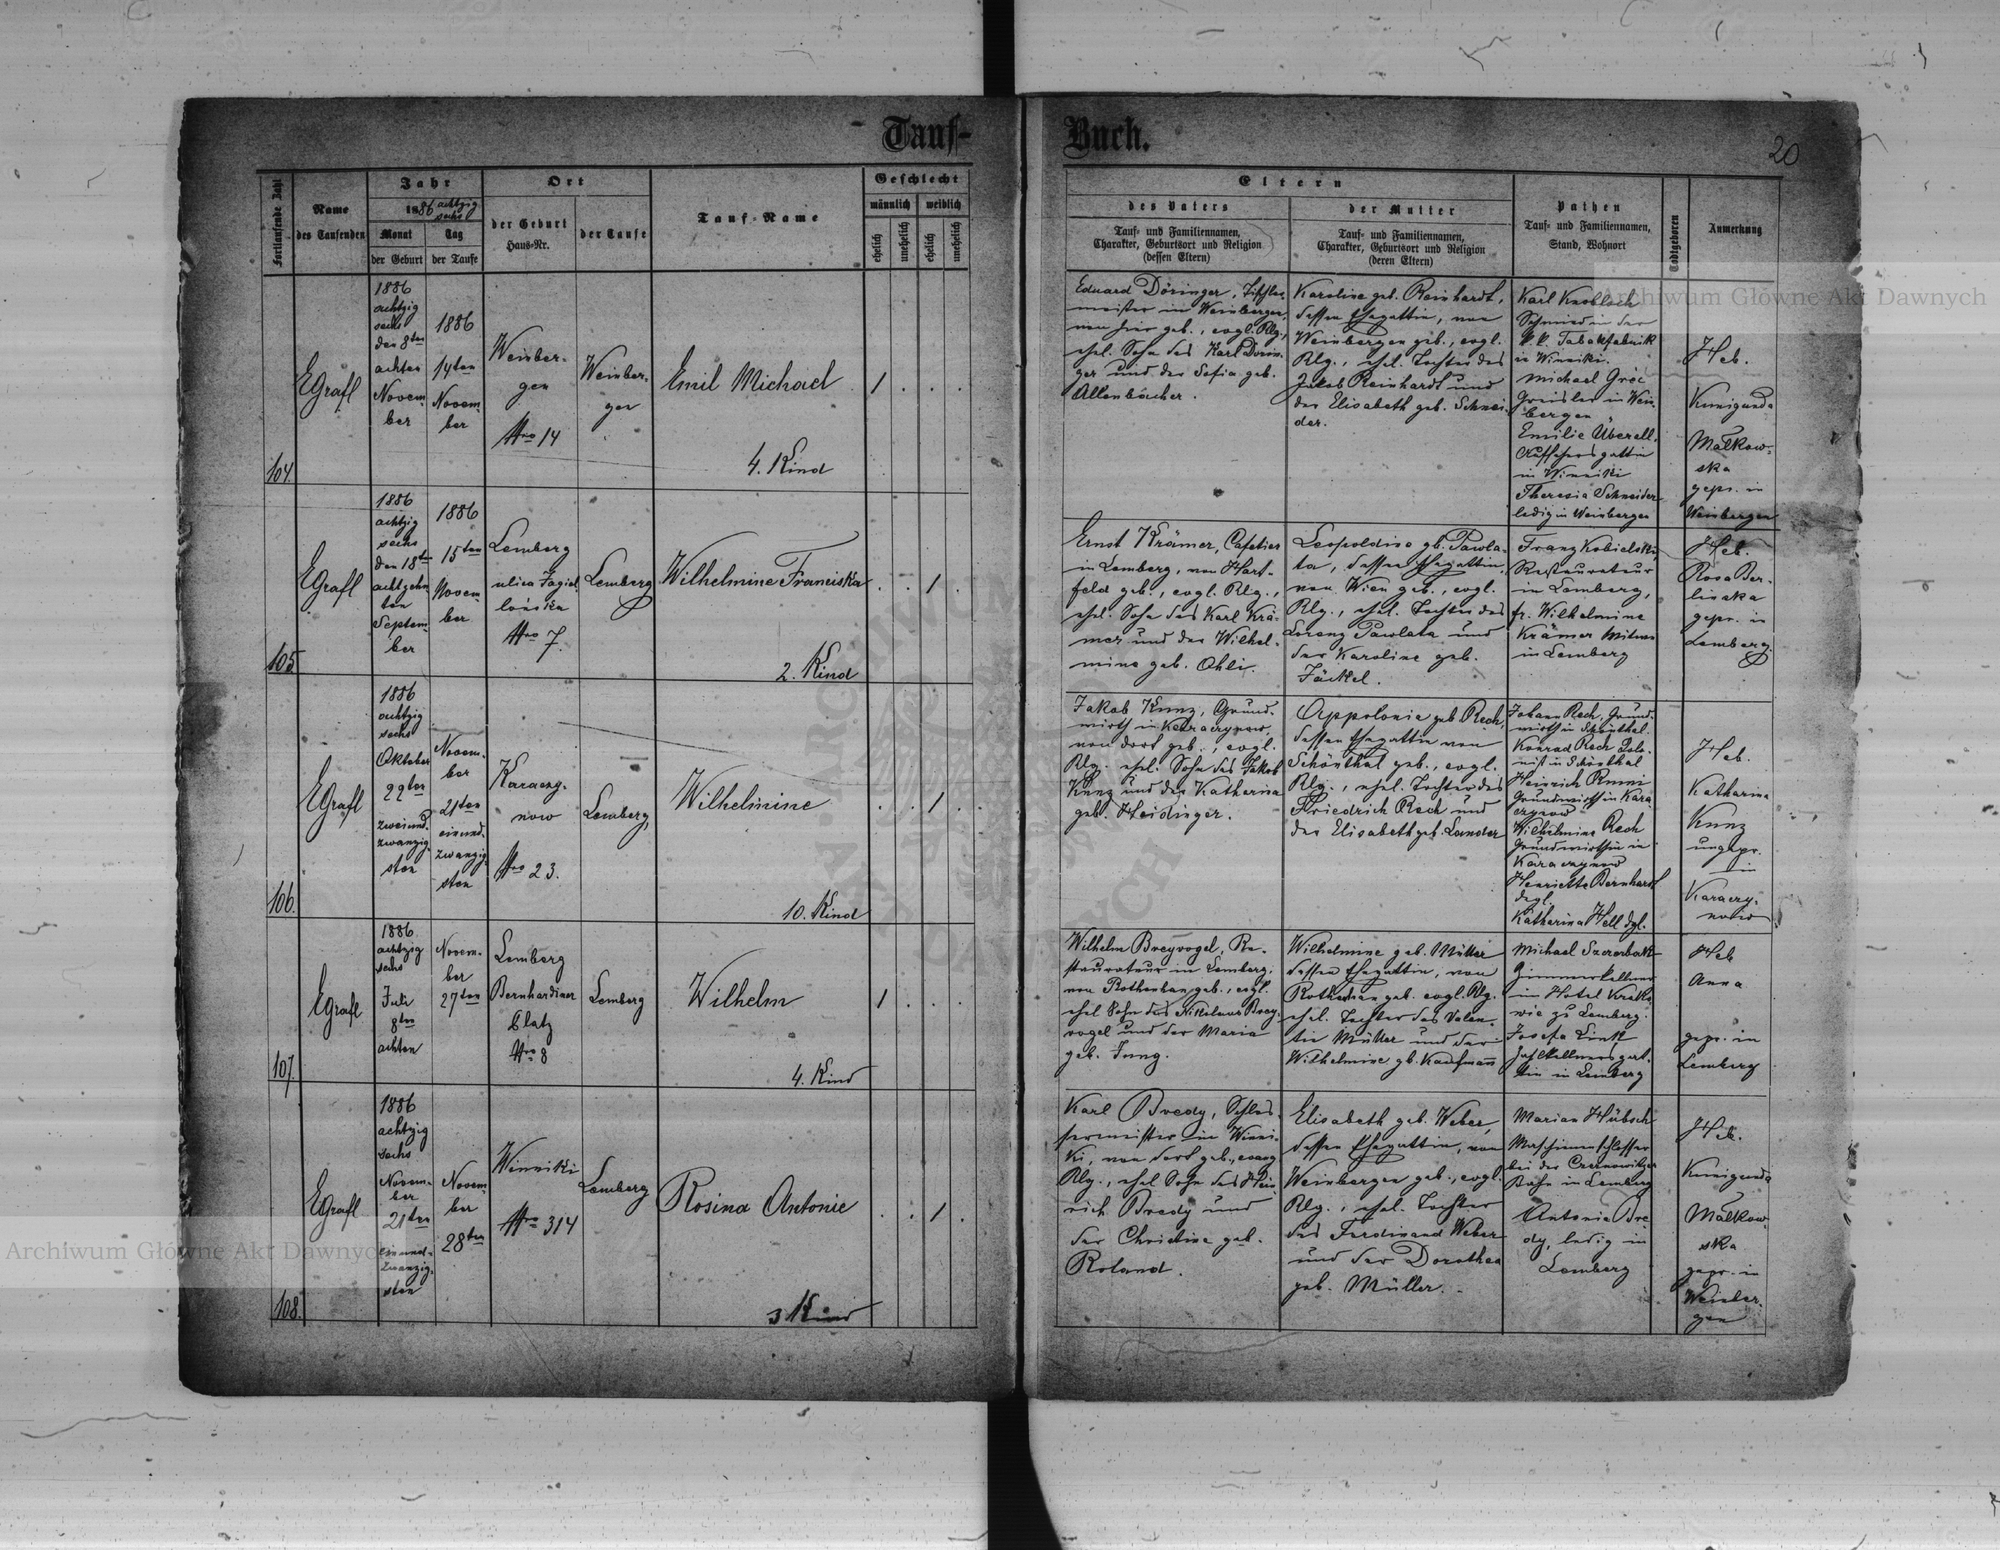 Tauf-
Buch.
20
Fortlaufende Zahl
Name
des Taufenden
Jahr
1886 achtzig
sechs
Monat
der Geburt
Tag
der Taufe
Ort
der Geburt
Haus-Nr.
der Taufe
Tauf-Name
Geschlecht
männlich
weiblich
ehelich
unehelich
ehelich
unehelich
Eltern
des Vaters
Tauf- und Familiennamen,
Charakter, Geburtsort und Religion
(dessen Eltern)
der Mutter
Tauf- und Familiennamen,
Charakter, Geburtsort und Religion
(deren Eltern)
Pathen
Tauf- und Familiennamen,
Stand, Wohnort
Todtgeboren
Anmerkung
104.
EGrafl
1886
achtzig
sechs
den 8ten
achten
Novem-
ber
1886
14ten
Novem-
ber
Weinber-
gen
Nro 14
Weinber-
gen
Emil Michael
4. Kind
1 . . .
Eduard Döringer, Tischler-
meister in Weinbergen,
von hier geb., evgl. Rlg.,
ehel. Sohn des Karl Dörin-
ger und der Sofia geb.
Allenbacher.
Karoline geb. Reinhardt,
dessen Ehegattin, von
Weinbergen geb., evgl.
Rlg., ehel. Tochter des
Jakob Reinhardt und
der Elisabeth geb. Schnei-
der.
Karl Knobloch
Schmied in der
k.k. Tabakfabrik
in Winniki.
Michael
Greisler in Wein-
bergen
Emilie Überall,
Aufsehersgattin
in Winniki
Theresia Schneider
ledig in Weinbergen
Heb.
Kunigunda
Małkow-
ska
gepr. in
Weinbergen
105.
EGrafl
1886
achtzig
sechs
den 18ten
achtzehn-
ten
Septem-
ber
1886
15ten
Novem-
ber
Lemberg
ulica Jagiel-
lońska
Nro 7.
Lemberg
Wilhelmine Franciska
2. Kind
. . 1 .
Ernst Krämer, Cafetier
in Lemberg, von Hart-
feld geb., evgl. Rlg.,
ehel. Sohn des Karl Krä-
mer und der Wilhel-
mine geb. Ohli.
Leopoldine gb. Pawla-
ta, dessen Ehegattin,
von Wien geb., evgl.
Rlg., ehel. Tochter des
Lorenz Pawlata und
der Karoline geb.
Jäckel.
Franz Kobielski,
Restaurateur
in Lemberg,
fr. Wilhelmine
Krämer Witwe
in Lemberg
Heb.
Rosa Ber-
linska
gepr. in
Lemberg.
106.
EGrafl
1886
achtzig
sechs
Oktober
22ten
zweiund-
zwanzig-
sten
Novem-
ber
21ten
einund-
zwanzig-
sten
Karaczy-
now
Nro 23.
Lemberg
Wilhelmine
10. Kind
. . 1 .
Jakob Kunz, Grund-
wirth in Karaczynow,
von dort geb., evgl.
Rlg. ehel. Sohn des Jakob
Kunz und der Katharina
geb. Heidinger.
Appolonie geb. Rech,
dessen Ehegattin von
Schönthal geb., evgl.
Rlg., ehel. Tochter des
Friedrich Rech und
der Elisabeth geb. Lander
Johann Rech, Grund-
wirth in Schönthal.
Konrad Rech Kolo-
nist in Schönthal
Heinrich
Grundwirth in Kara-
czynow
Wilhelmine Rech
Grundwirthin in
Karaczynow
Henriette Bernhardt
dtgl.
Katharina Hell dgl.
Heb.
Katharina
Kunz
ungepr.
in
Karaczy-
now
107.
EGrafl
1886
achtzig
sechs
Juli
8ten
achten
Novem-
ber
27ten
Lemberg
Bernhardiner
Platz
Nro 8
Lemberg
Wilhelm
4. Kind
1 . . .
Wilhelm Breyvogel, Re-
staurateur in Lemberg,
von Rothenhan geb., evgl.
ehel. Sohn des Nikolaus Brey-
vogel und der Maria
geb. Jung.
Wilhelmine geb. Müller
dessen Ehegattin, von
Rothenhan geb. evgl. Rlg.
ehel. Tochter des Valen-
tin Müller und der
Wilhelmine gb. Kaufmann
Michael
Zimmerkellner
im Hotel Krako-
wie zu Lemberg.
Josefa Link
Zahlkellnersgat-
tin in Lemberg
Heb.
Anna
gepr. in
Lemberg
108.
EGrafl
1886
achtzig
sechs
Novem-
ber
21ten
einund-
zwanzig-
sten
Novem-
ber
28ten
Winniki
Nro 314
Lemberg
Rosina Antonie
3 Kind
. . 1 .
Karl Bredy, Schlos-
sermeister in Winni-
ki, von dort geb., evang.
Rlg., ehel. Sohn des Hein-
rich Bredy und
der Christine geb.
Roland.
Elisabeth geb. Weber,
dessen Ehegattin, von
Weinbergen geb., evgl.
Rlg., ehel. Tochter
des Ferdinand Weber
und der Dorothea
geb. Müller.
Marian Hübsch
Maschinenschlosser
bei der Czernowitzer
Bahn in Lemberg
Antonie Bre-
dy, ledig in
Lemberg
Heb.
Kunigunda
Małkow-
ska
gepr. in
Weinber-
gen
Archiwum Główne Akt Dawnych
Archiwum Główne Akt Dawnych